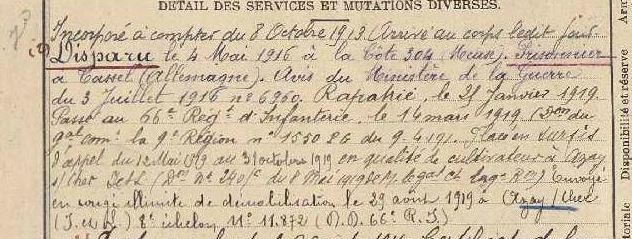 DÉTAIL DES SERVICES ET MUTATIONS DIVERSES.
Incorporé à compter du 8 Octobre 1913. Arrivé au corps ledit jour.
Disparu le 4 Mai 1916 à la Côte 304 (Meuse). Prisonnier
à Cassel (Allemagne). Avis du Ministère de la Guerre
du 3 Juillet 1916 nº 6960. Rapatrié le 21 Janvier 1919.
Passé au 66e Régt d'Infanterie le 14 mars 1919 (Don du
gal comt la 9e Région nº 1550 du 9.4.19). Placé en sursis
d'appel du 12 Mai 1919 au 31 octobre 1919 en qualité de cultivateur à Azay
s/Cher I et L (Don nº du 8 Mai 1919 Envoyé
en congé illimité de démobilisation le 29 août 1919 à Azay s/Cher
(I. et L.) 8e échelon Nº 11.872 (D.D. 66e R.I.)
Disponibilité et réserve